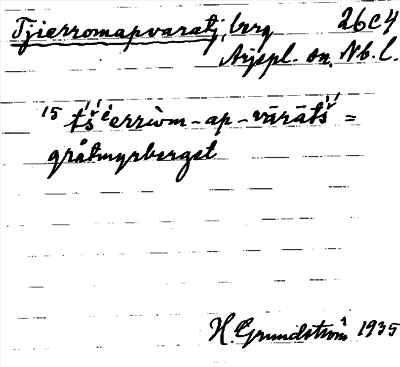 Tjierromapvaratj, brrg 26C4
Arjepl. sn. Nb. l.
15 t́š́ierròm-ap-vārātš́ =
gråtmyrberget
H. Grundström 1935